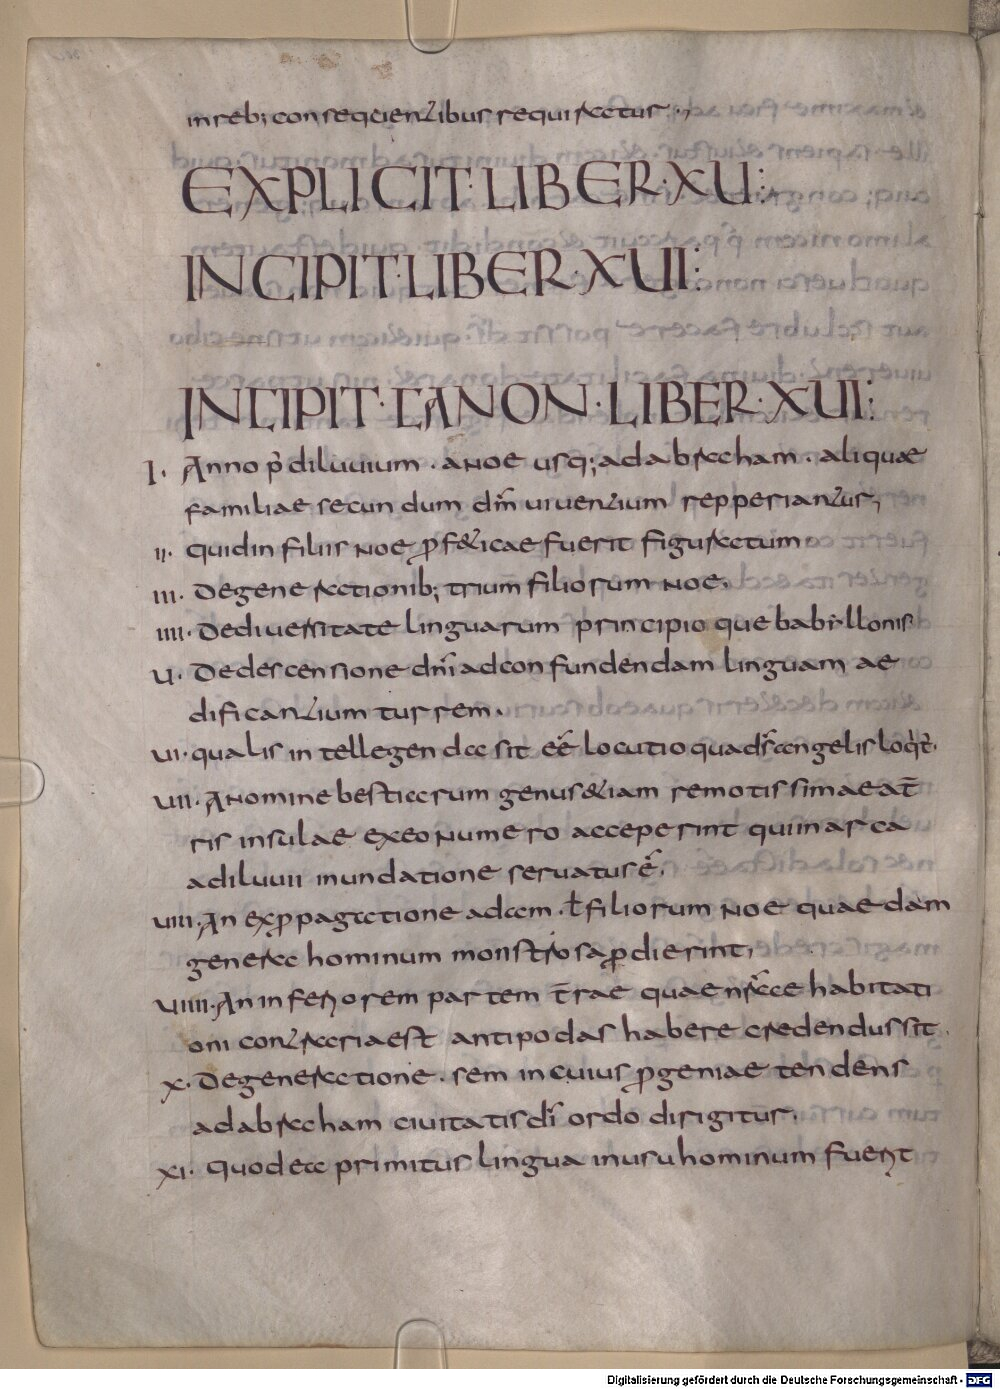 in reb; conseqcienzibus requiractur
EXPLICIT·LIBER·XU:
INCIPIT·LIBER·XUI:
INCIPIT·CANON·LIBER·XUI:
I. Anno p̄ diluuium · a Noe usq; ad abracham · aliquae
familiae secundum dm̄ uiuenzium repperianzur,
II. Quid in filiis Noe ꝓf&icae fuerit figuractum
III. De generactionib; trium filiorum Noe.
IIII. De diuersitate linguarum principio que babillonis
U. De descensione dn̄i ad confundendam linguam ae
dificanzium turrem.
UI. qualis intellegenda sit eē locutio qua dr̄ angelis loqt̄.
UII. A nomine bestiarum genus &iam remotissimae at̄
ris insulae ex eo numero acceperint qui in arca
a diluuii inundatione seruatus ē.
UIII. An ex ꝓpagactione adam · t̄ filiorum Noe quaedam
genera hominum monstrosa ꝓdierint,
UIIII. An inferiorem partem t̄rae quae nr̄ae habitati
oni conzraria est antipodas habere credendus sit.
X. De generactione · sem in cuius ꝓgeniae tendens
ad abracham ciuitatis dī ordo dirigitur.
XI. Quod ea primitus lingua in usu hominum fuerit
Digitalisierung gefördert durch die Deutsche Forschungsgemeinschaft - DFG